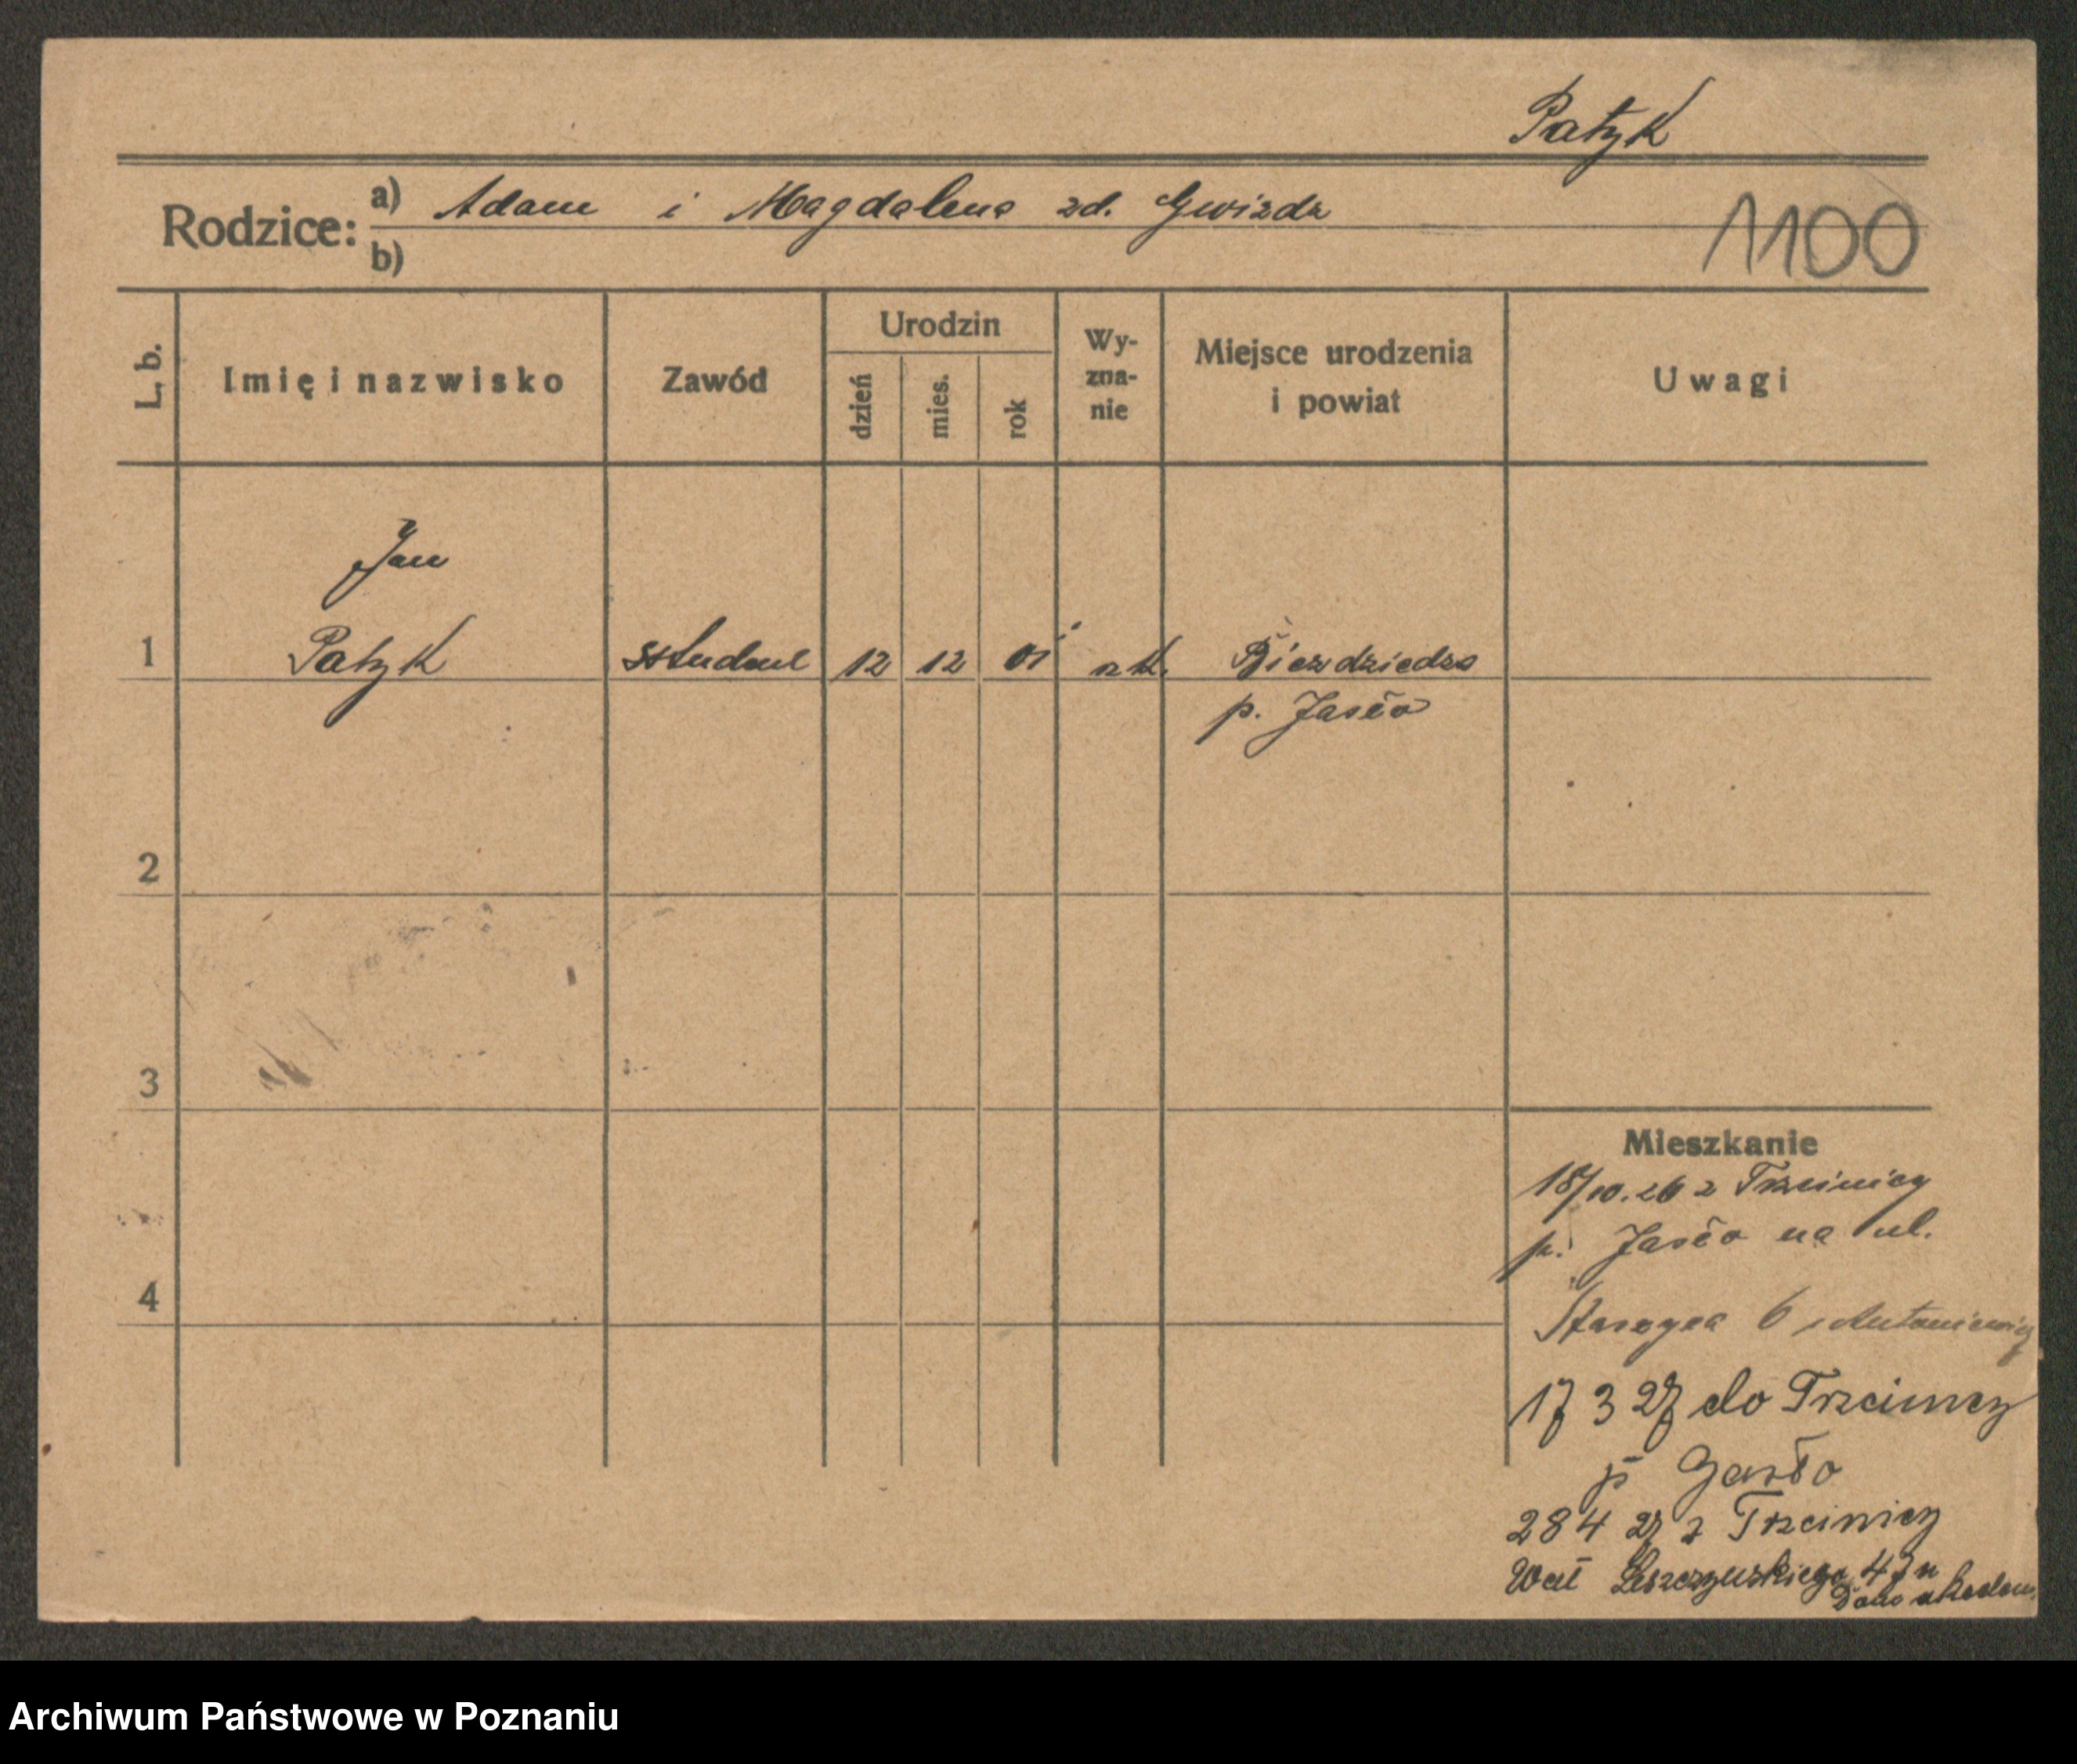 Patyk
Rodzice: a) Adam i Magdalena zd. Gwizdz
b)
1100
L. b.
Imię i nazwisko
Zawód
Urodzin
dzień
mies.
rok
Wy-
zna-
nie
Miejsce urodzenia
i powiat
Uwagi
Jan
1 Patyk student 12 12 01 rk. Bieździedza
p. Jasło
2
3
4
Mieszkanie
18/10.26 z Trzcinicy
p. Jasło na ul.
Staszyca 6 Antoniewicz
17 3 27 do Trzcinicy
p Jasło
28 4 27 z Trzcinicy
Wał Leszczyńskiego 4/7 u
Dom akadem.
Archiwum Państwowe w Poznaniu